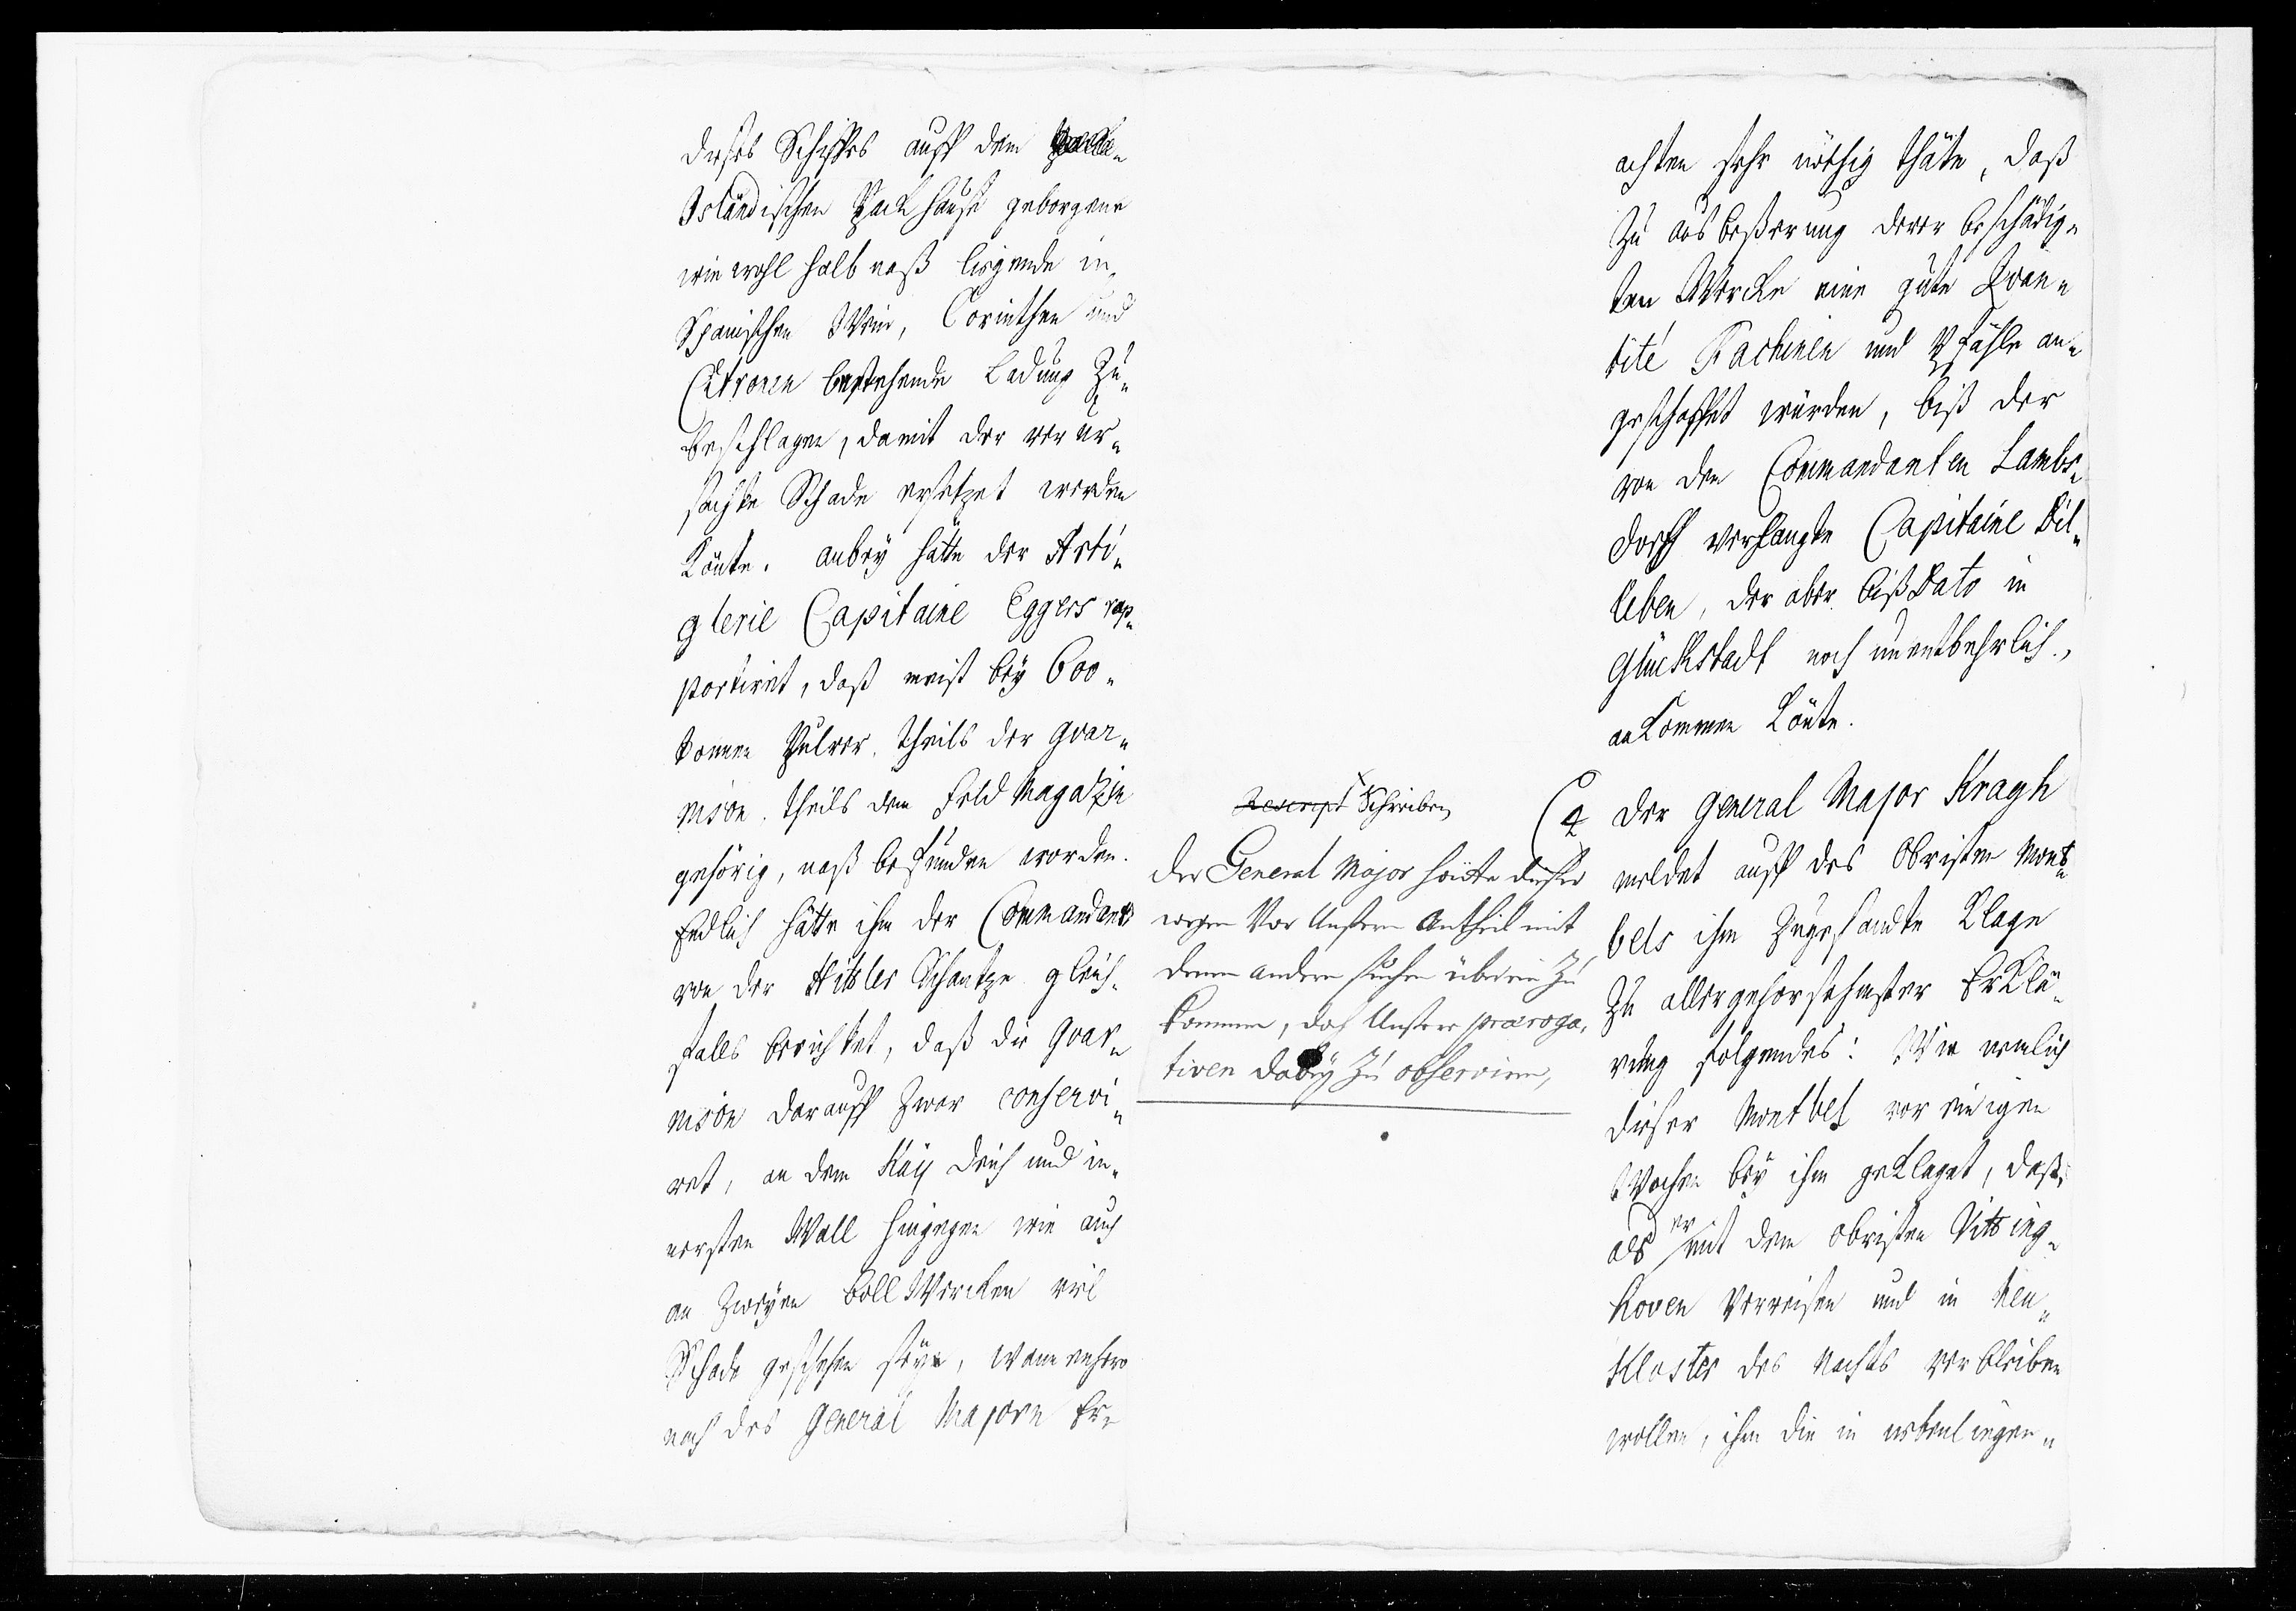 dieses Schiffes auff dem
Isländischen Packhause geborgene
wiewohl halb naß liegende in
Spanischen Wein, Corinthen und
Citronen bestehende Ladung zu
beschlagen, damit der verur-
sachte Schade ersetzet werden
könte. anbey hätte der Arti-
glerie Capitaine Eggers rap-
portiret, daß meist bey 600
tonnen Pulver, theils der Guar-
nison, theils dem Feld Magazin
gehörig, naß befunden worden.
Endlich hätte ihm der Commandant
von der Hitzler Schantze gleich-
falls berichtet, daß die Guar-
nison darauff zwar conservi-
ret, an dem Kay Deich und in-
nersten Wall hingegen wie auch
an zweyen bollWercken viel
Schade geschehen seye, wannenhero
nach des General Majorn Er-
achten sehr nöthig thäte, daß
zu ausbeßerung derer beschädig-
ten Wercke eine gute Quan-
tité Fachinen und Pfähle an-
geschaffet würden, biß der
von dem Commandanten Lambs-
dorff verlangte Capitaine Dil-
leben, der aber biß Dato in
Glückstadt noch unentbehrlich,
ankommen könte.
Rescript Schreiben
der General Major hätte dieser
wegen vor Unsern Antheil mit
denen andern suchen überein zu
kommen, doch Unsere præroga-
tiven dabey zu observiren,
(4 Der General Major Kragh
meldet auff des Obristen Mont-
bels ihm zugesandte Klage
zu allergehorsahmster Erklä-
rung folgendes: Wie nemlich
dieser Montbel vor einigen
Wochen bey ihm geklaget, daß,
als er mit dem Obristen Vitting-
hoven verreisen und in Neu-
Kloster des Nachts verbleiben
wollen, ihm die in